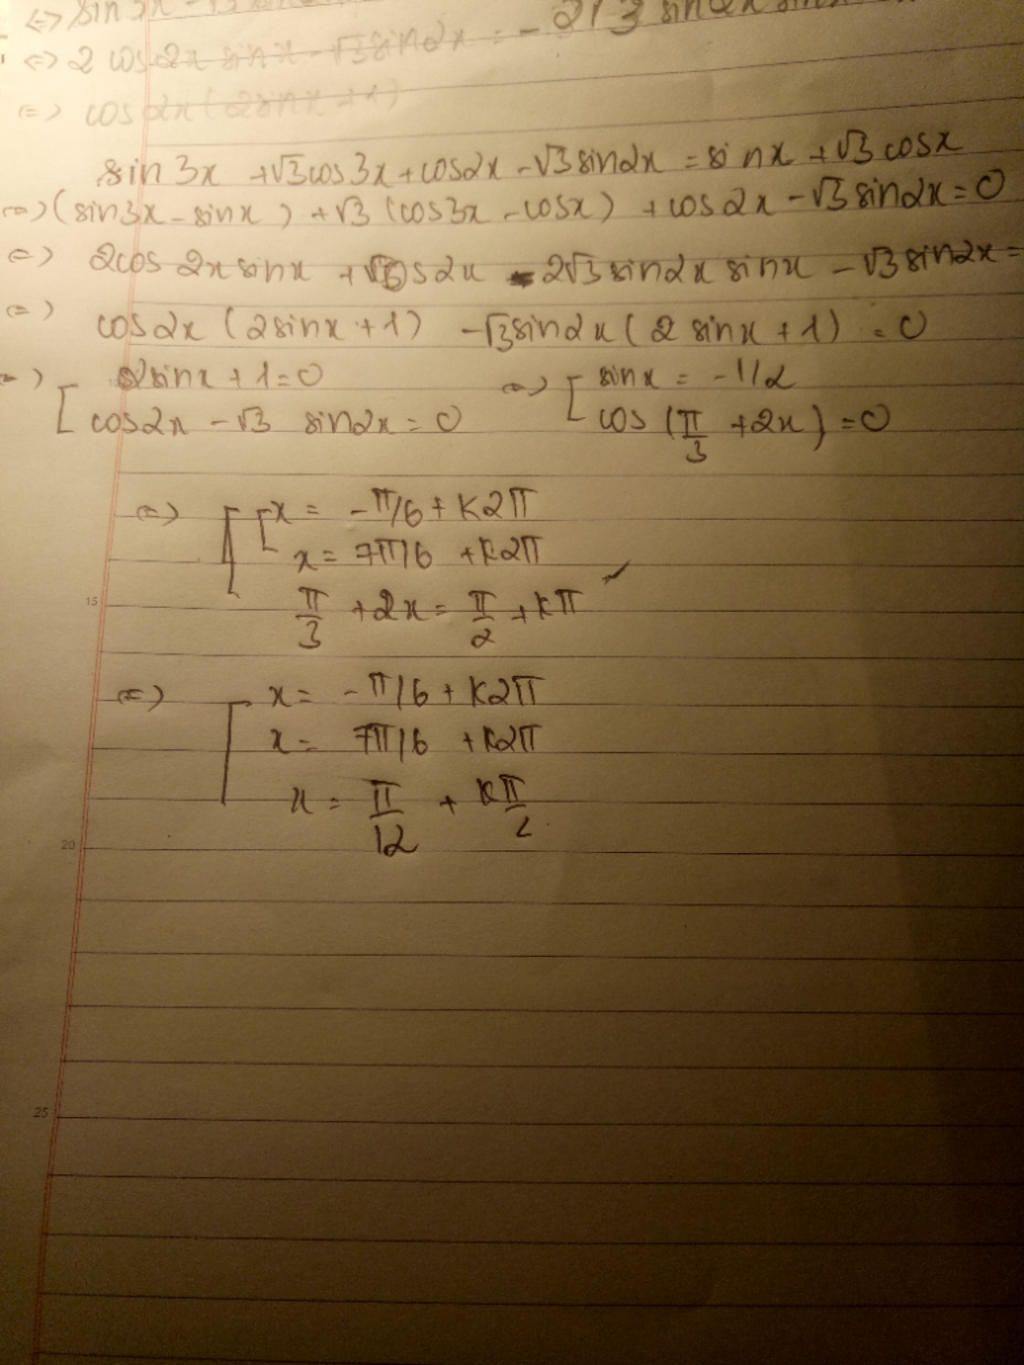 <=> 2 cos2x sinx - √3 sin2x = -2√3 sin2x
<=> cos2x (2sinx + 1)
sin3x + √3cos3x + cos2x - √3sin2x = sinx + √3cosx
<=> (sin3x - sinx) + √3 (cos3x - cosx) + cos2x - √3sin2x = 0
<=> 2cos2x sinx + cos2x - 2√3sin2x sinx - √3sin2x =
<=> cos2x (2sinx + 1) - √3sin2x (2 sinx + 1) = 0
<=> [ 2sinx + 1 = 0 <=> [ sinx = -1/2
cos2x - √3 sin2x = 0 cos (π/3 + 2x) = 0
<=> [ [ x = -π/6 + K2π
x = 7π/6 + k2π
π/3 + 2x = π/2 + kπ
<=> [ x = -π/6 + K2π
x = 7π/6 + k2π
15
x = π/12 + kπ/2
20
25